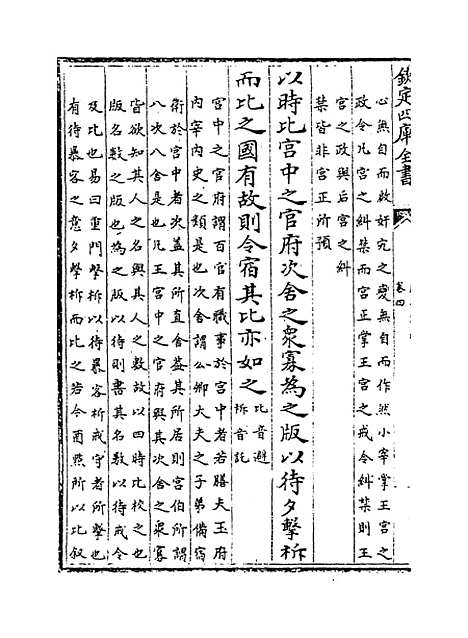 欽定四庫全書
卷四
心無自而啟奸宄之變無自而作然小宰掌王宮之
政令凡宮之糾禁而宮正掌王宮之戒令糾禁則王
宮之政與后宮之糾
禁皆非宮正所預
以時比宮中之官府次舍之衆寡為之版以待夕擊柝
而比之國有故則令宿其比亦如之
比音避
柝音託
宮中之官府謂百官有職事於宮中者若膳夫玉府
内宰内史之類是也次舍謂公卿大夫之子弟備宿
衛於宮中者次蓋其所直舍蓋其所居則宮伯所謂
八次八舍是也凡王宮中之官府與其次舍之衆寡
皆欲知其人之名與其人之數故以四時比校之也
版名數之版也為之版以待則書其名數以待戒令
及比也易曰重門擊柝以待暴客柝戒守者所擊也
有待暴客之意夕擊柝而比之若今酉㸃所以比叙